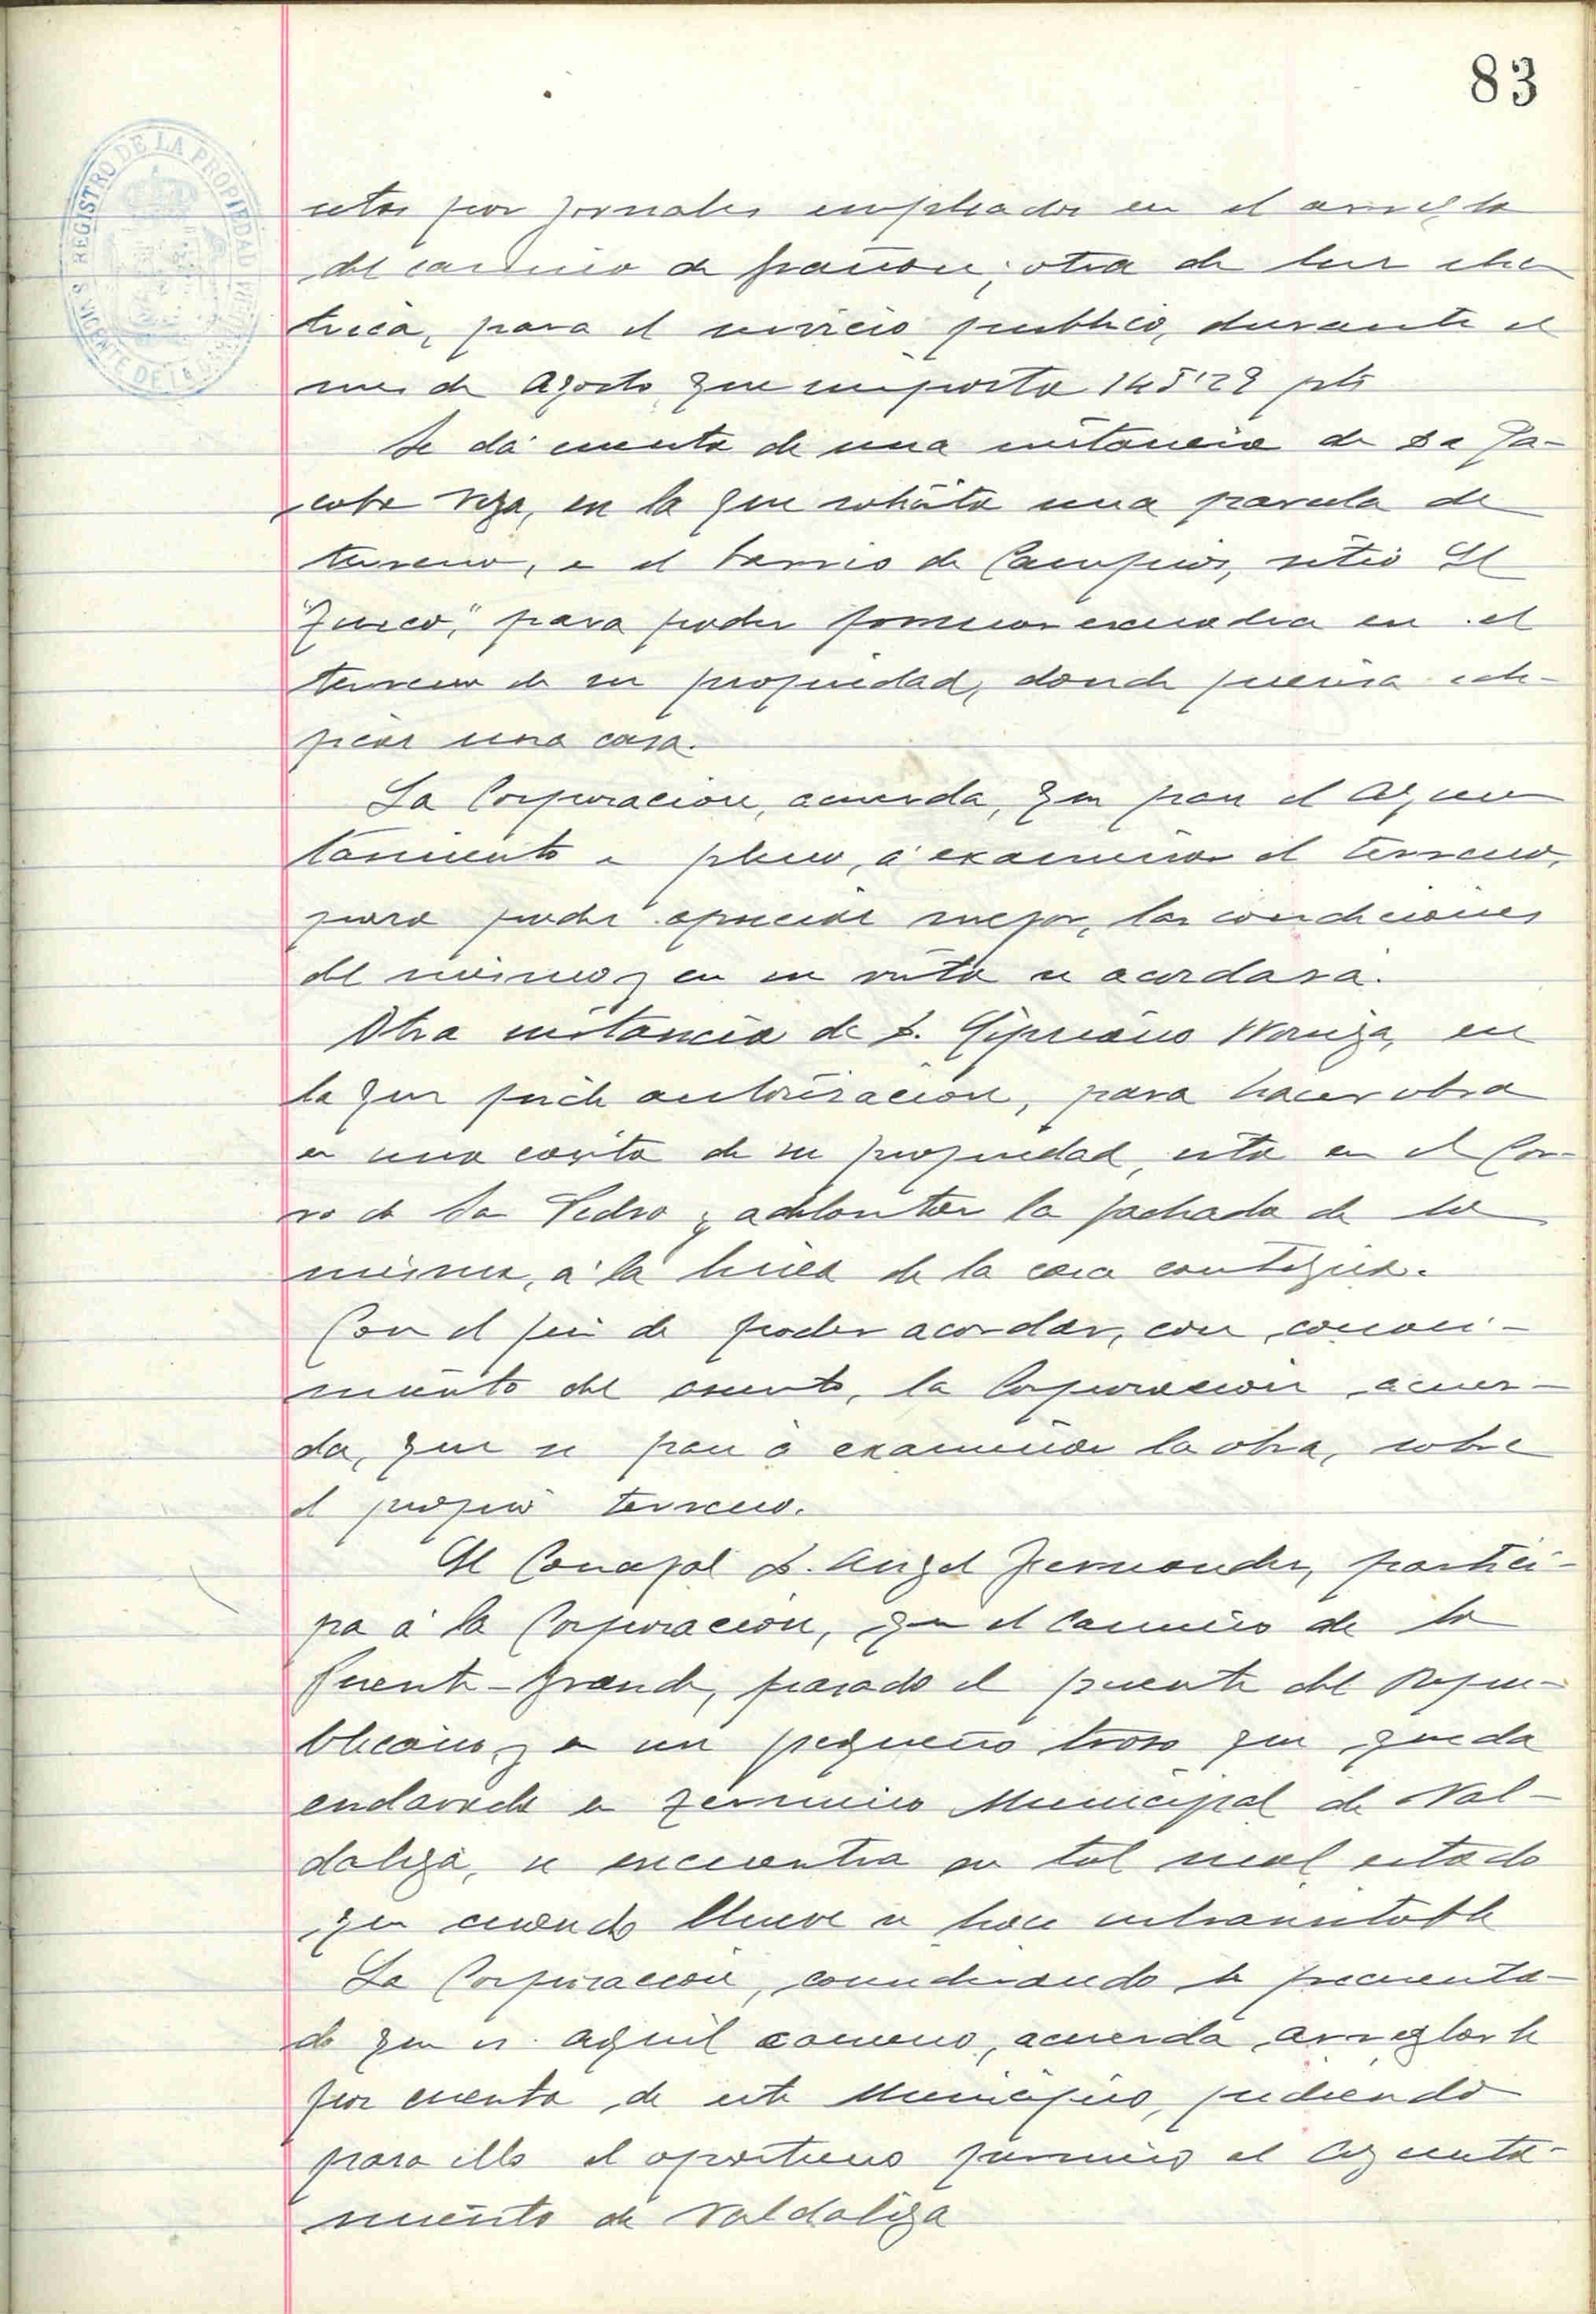 83
REGISTRO DE LA PROPIEDAD
S. VICENTE DE LA BARQUERA
setas por jornales empleados en el arreglo
del camino de ; otra de luz elec
trica, para el servicio publico, durante el
mes de Agosto, que importa 145'29 pts
Se dá cuenta de una instancia de Da Ja-
coba Vega, en la que solicita una parcela de
terreno, en el barrio de Campios, sitio El
"Jusco", para poder formar escuadra en el
terreno de su propiedad, donde piensa edi-
ficar una casa.
La Corporacion, acuerda, que pase el Ayun
tamiento en pleno, á examinar el terreno,
para poder apreciar mejor, las condiciones
del mismo y en su vista se acordará.
Otra instancia de D. Cipriano Noriega, en
la que pide autorizacion, para hacer obra
en una casita de su propiedad, sita en el Co-
rro de San Pedro y adelantar la fachada de la
misma, á la linea de la casa contigua.
Con el fin de poder acordar, con conoci-
miento del asunto, la Corporacion acuer-
da, que se pase á examinar la obra, sobre
el propio terreno.
El Concejal D. Angel Fernandez, partici-
pa á la Corporacion, que el camino de la
fuente-grande, pasado el puente del Repu-
blicano, y en un pequeño trozo que queda
enclavado en Termino Municipal de Val-
daliga, se encuentra en tal mal estado
que cuando llueve se hace intransitable
La Corporacion, considerando lo frecuenta-
do que es aquel camino, acuerda arreglarle
por cuenta de este Municipio, pidiendo
para ello el oportuno permiso al Ayunta-
miento de Valdaliga